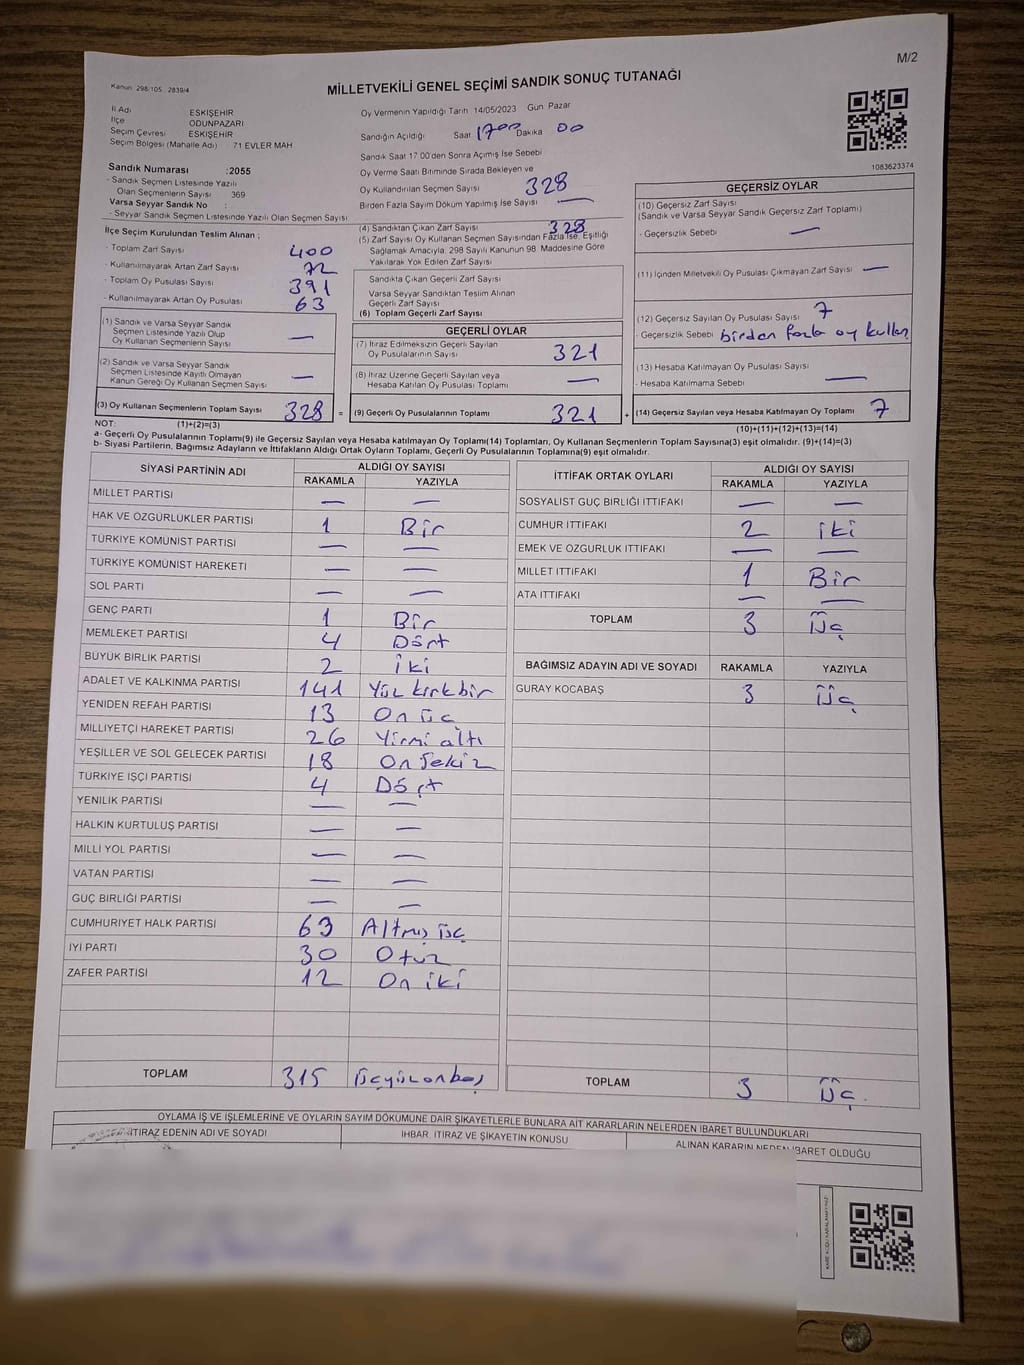 M/2
Kanun 298/105 . 2839/4
MİLLETVEKİLİ GENEL SEÇİMİ SANDIK SONUÇ TUTANAĞI
İl Adı ESKİŞEHİR
İlçe ODUNPAZARI
Seçim Çevresi ESKİŞEHİR
Seçim Bölgesi (Mahalle Adı) 71 EVLER MAH
Oy Vermenin Yapıldığı Tarih 14/05/2023 Gün Pazar
Sandığın Açıldığı Saat 1700 Dakika 00
Sandık Saat 17 00'den Sonra Açmış İse Sebebi
Oy Verme Saati Bitiminde Sırada Bekleyen ve
Oy Kullandırılan Seçmen Sayısı 328
Birden Fazla Sayım Döküm Yapılmış İse Sayısı —
1083623374
Sandık Numarası :2055
- Sandık Seçmen Listesinde Yazılı
Olan Seçmenlerin Sayısı 369
Varsa Seyyar Sandık No :
- Seyyar Sandık Seçmen Listesinde Yazılı Olan Seçmen Sayısı
İlçe Seçim Kurulundan Teslim Alınan ;
- Toplam Zarf Sayısı 400
- Kullanılmayarak Artan Zarf Sayısı 72
- Toplam Oy Pusulası Sayısı 391
- Kullanılmayarak Artan Oy Pusulası 63
(1) Sandık ve Varsa Seyyar Sandık
Seçmen Listesinde Yazılı Olup
Oy Kullanan Seçmenlerin Sayısı —
(2) Sandık ve Varsa Seyyar Sandık
Seçmen Listesinde Kayıtlı Olmayan
Kanun Gereği Oy Kullanan Seçmen Sayısı —
(3) Oy Kullanan Seçmenlerin Toplam Sayısı 328 =
(1)+(2)=(3)
(4) Sandıktan Çıkan Zarf Sayısı 328
(5) Zarf Sayısı Oy Kullanan Seçmen Sayısından Fazla İse, Eşitliği
Sağlamak Amacıyla: 298 Sayılı Kanunun 98. Maddesine Göre
Yakılarak Yok Edilen Zarf Sayısı
Sandıkta Çıkan Geçerli Zarf Sayısı
Varsa Seyyar Sandıktan Teslim Alınan
Geçerli Zarf Sayısı
(6) Toplam Geçerli Zarf Sayısı
GEÇERLİ OYLAR
(7) İtiraz Edilmeksizin Geçerli Sayılan
Oy Pusulalarının Sayısı 321
(8) İtiraz Üzerine Geçerli Sayılan veya
Hesaba Katılan Oy Pusulası Toplamı —
(9) Geçerli Oy Pusulalarının Toplamı 321 +
GEÇERSİZ OYLAR
(10) Geçersiz Zarf Sayısı
(Sandık ve Varsa Seyyar Sandık Geçersiz Zarf Toplamı)
- Geçersizlik Sebebi —
(11) İçinden Milletvekili Oy Pusulası Çıkmayan Zarf Sayısı —
(12) Geçersiz Sayılan Oy Pusulası Sayısı 7
- Geçersizlik Sebebi birden fazla oy kullan
(13) Hesaba Katılmayan Oy Pusulası Sayısı
- Hesaba Katılmama Sebebi —
(14) Geçersiz Sayılan veya Hesaba Katılmayan Oy Toplamı 7
(10)+(11)+(12)+(13)=(14)
NOT:
a- Geçerli Oy Pusulalarının Toplamı(9) ile Geçersiz Sayılan veya Hesaba katılmayan Oy Toplamı(14) Toplamları, Oy Kullanan Seçmenlerin Toplam Sayısına(3) eşit olmalıdır. (9)+(14)=(3)
b- Siyasi Partilerin, Bağımsız Adayların ve İttifakların Aldığı Ortak Oyların Toplamı, Geçerli Oy Pusulalarının Toplamına(9) eşit olmalıdır.
SİYASİ PARTİNİN ADI ALDIĞI OY SAYISI
RAKAMLA YAZIYLA
MİLLET PARTİSİ — —
HAK VE ÖZGÜRLÜKLER PARTİSİ 1 Bir
TÜRKİYE KOMÜNİST PARTİSİ — —
TÜRKİYE KOMÜNİST HAREKETİ — —
SOL PARTİ — —
GENÇ PARTİ 1 Bir
MEMLEKET PARTİSİ 4 Dört
BÜYÜK BİRLİK PARTİSİ 2 iki
ADALET VE KALKINMA PARTİSİ 141 Yüz kırk bir
YENİDEN REFAH PARTİSİ 13 On üç
MİLLİYETÇİ HAREKET PARTİSİ 26 Yirmi altı
YEŞİLLER VE SOL GELECEK PARTİSİ 18 On sekiz
TÜRKİYE İŞÇİ PARTİSİ 4 Dört
YENİLİK PARTİSİ — —
HALKIN KURTULUŞ PARTİSİ — —
MİLLİ YOL PARTİSİ — —
VATAN PARTİSİ — —
GÜÇ BİRLİĞİ PARTİSİ — —
CUMHURİYET HALK PARTİSİ 63 Altmış üç
İYİ PARTİ 30 Otuz
ZAFER PARTİSİ 12 On iki
TOPLAM 315 üçyüzonbeş
İTTİFAK ORTAK OYLARI ALDIĞI OY SAYISI
RAKAMLA YAZIYLA
SOSYALİST GÜÇ BİRLİĞİ İTTİFAKI — —
CUMHUR İTTİFAKI 2 iki
EMEK VE ÖZGÜRLÜK İTTİFAKI — —
MİLLET İTTİFAKI 1 Bir
ATA İTTİFAKI — —
TOPLAM 3 üç
BAĞIMSIZ ADAYIN ADI VE SOYADI RAKAMLA YAZIYLA
GÜRAY KOCABAŞ 3 üç
TOPLAM 3 üç.
OYLAMA İŞ VE İŞLEMLERİNE VE OYLARIN SAYIM DÖKÜMÜNE DAİR ŞİKAYETLERLE BUNLARA AİT KARARLARIN NELERDEN İBARET BULUNDUKLARI
İTİRAZ EDENİN ADI VE SOYADI İHBAR, İTİRAZ VE ŞİKAYETİN KONUSU ALINAN KARARIN NEDEN İBARET OLDUĞU